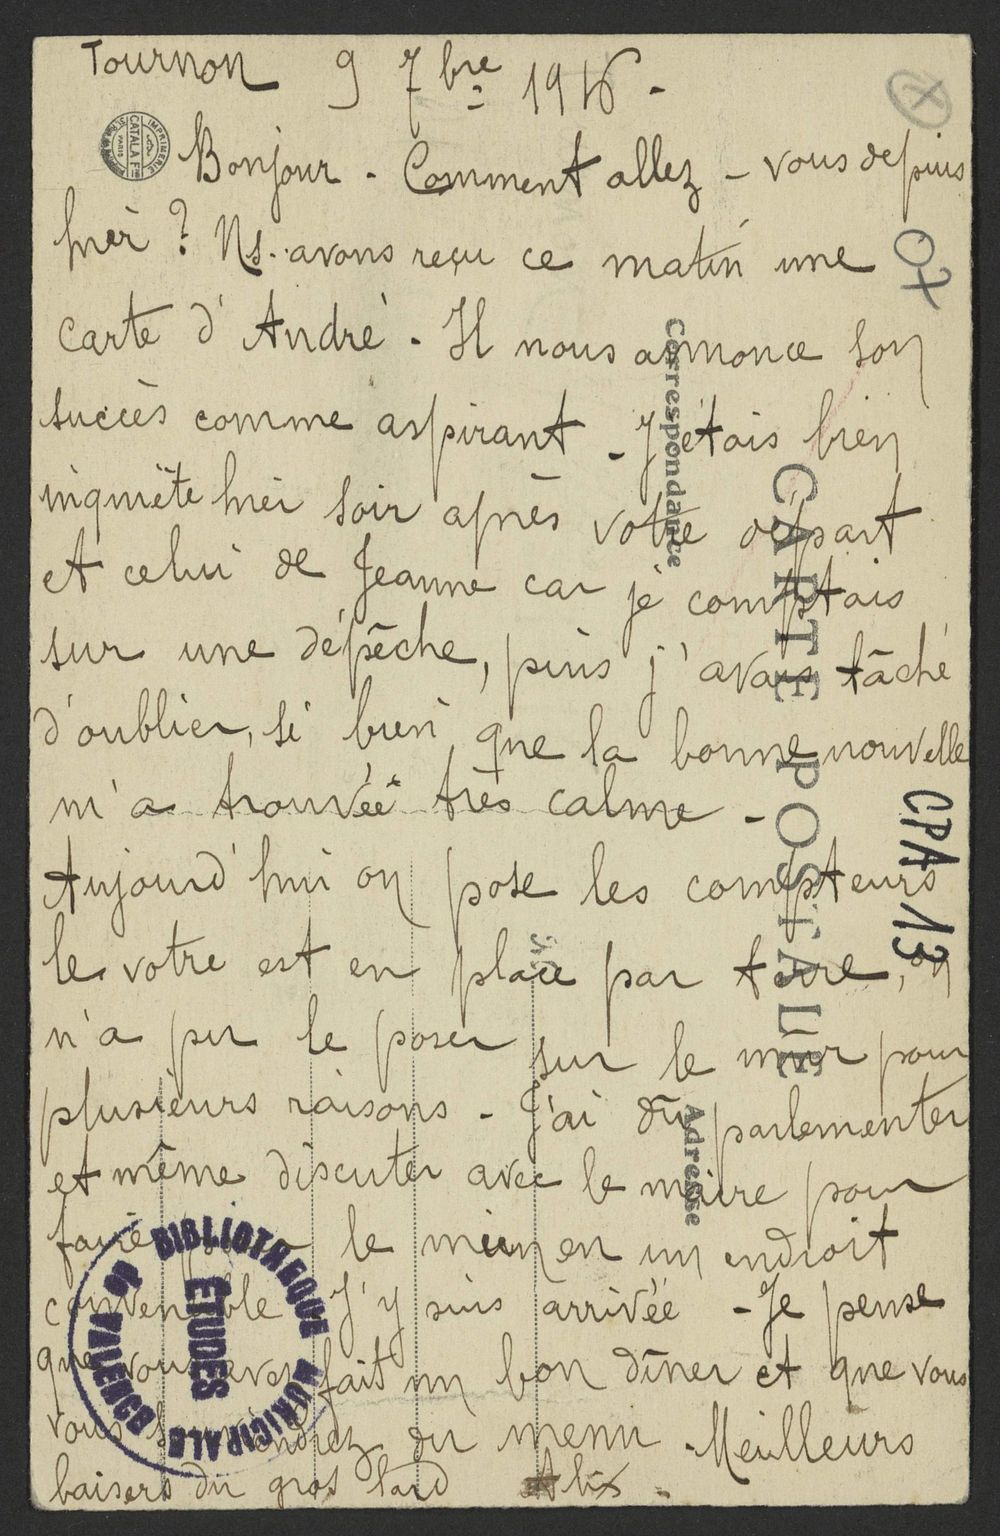 Tournon 9 7bre 1916.
Bonjour. Comment allez-vous depuis
hier ? Ns. avons reçu ce matin une
carte d'André. Il nous annonce son
succès comme aspirant. J'étais bien
inquiète hier soir après votre départ
et celui de Jeanne car je comptais
sur une dépêche, puis j'avais tâché
d'oublier, si bien que la bonne nouvelle
m'a trouvée très calme.
Aujourd'hui on pose les compteurs
le votre est en place par terre, on
n'a pu le poser sur le mur pour
plusieurs raisons. J'ai dû parlementer
et même discuter avec le maire pour
faire le mien en un endroit
convenable J'y suis arrivée - Je pense
que vous avez fait un bon dîner et que vous
vous souviendrez du menu. Meilleurs
baisers du gros lard Alix.
IMPRIMERIE
CATALA Frs
PARIS
CARTE POSTALE
Correspondance
Adresse
07
CPA 13
BIBLIOTHEQUE MUNICIPALE
de VALENCE
ÉTUDES